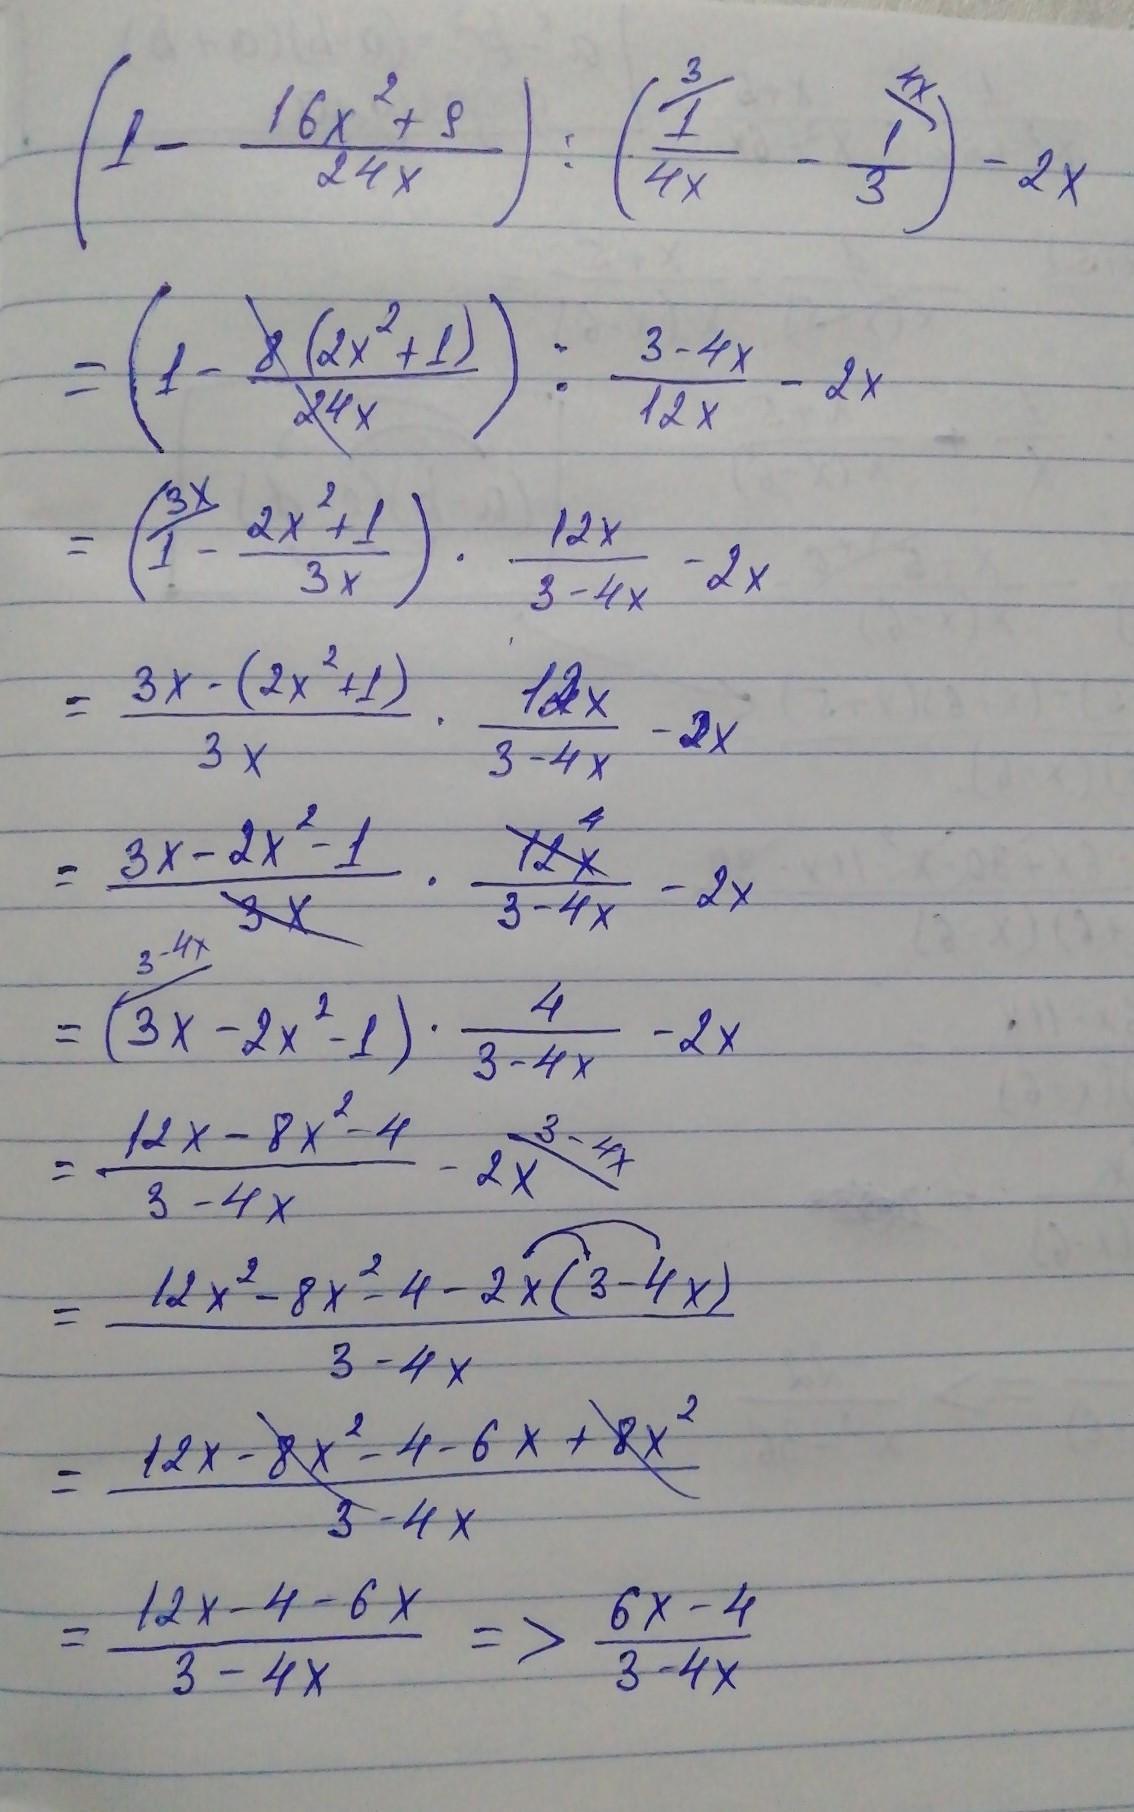 (1 - (16x² + 9)/(24x)) : (1/(4x) - 1/3) - 2x 3 4x
= (1 - 8(2x² + 1)/(24x)) : (3 - 4x)/(12x) - 2x
= (1 - (2x² + 1)/(3x)) · 12x/(3 - 4x) - 2x 3x
= (3x - (2x² + 1))/(3x) · 12x/(3 - 4x) - 2x
= (3x - 2x² - 1)/(3x) · 12x/(3 - 4x) - 2x 4
= (3x - 2x² - 1) · 4/(3 - 4x) - 2x 3 - 4x
= (12x - 8x² - 4)/(3 - 4x) - 2x 3 - 4x
= (12x² - 8x² - 4 - 2x(3 - 4x))/(3 - 4x)
= (12x - 8x² - 4 - 6x + 8x²)/(3 - 4x)
= (12x - 4 - 6x)/(3 - 4x) => (6x - 4)/(3 - 4x)